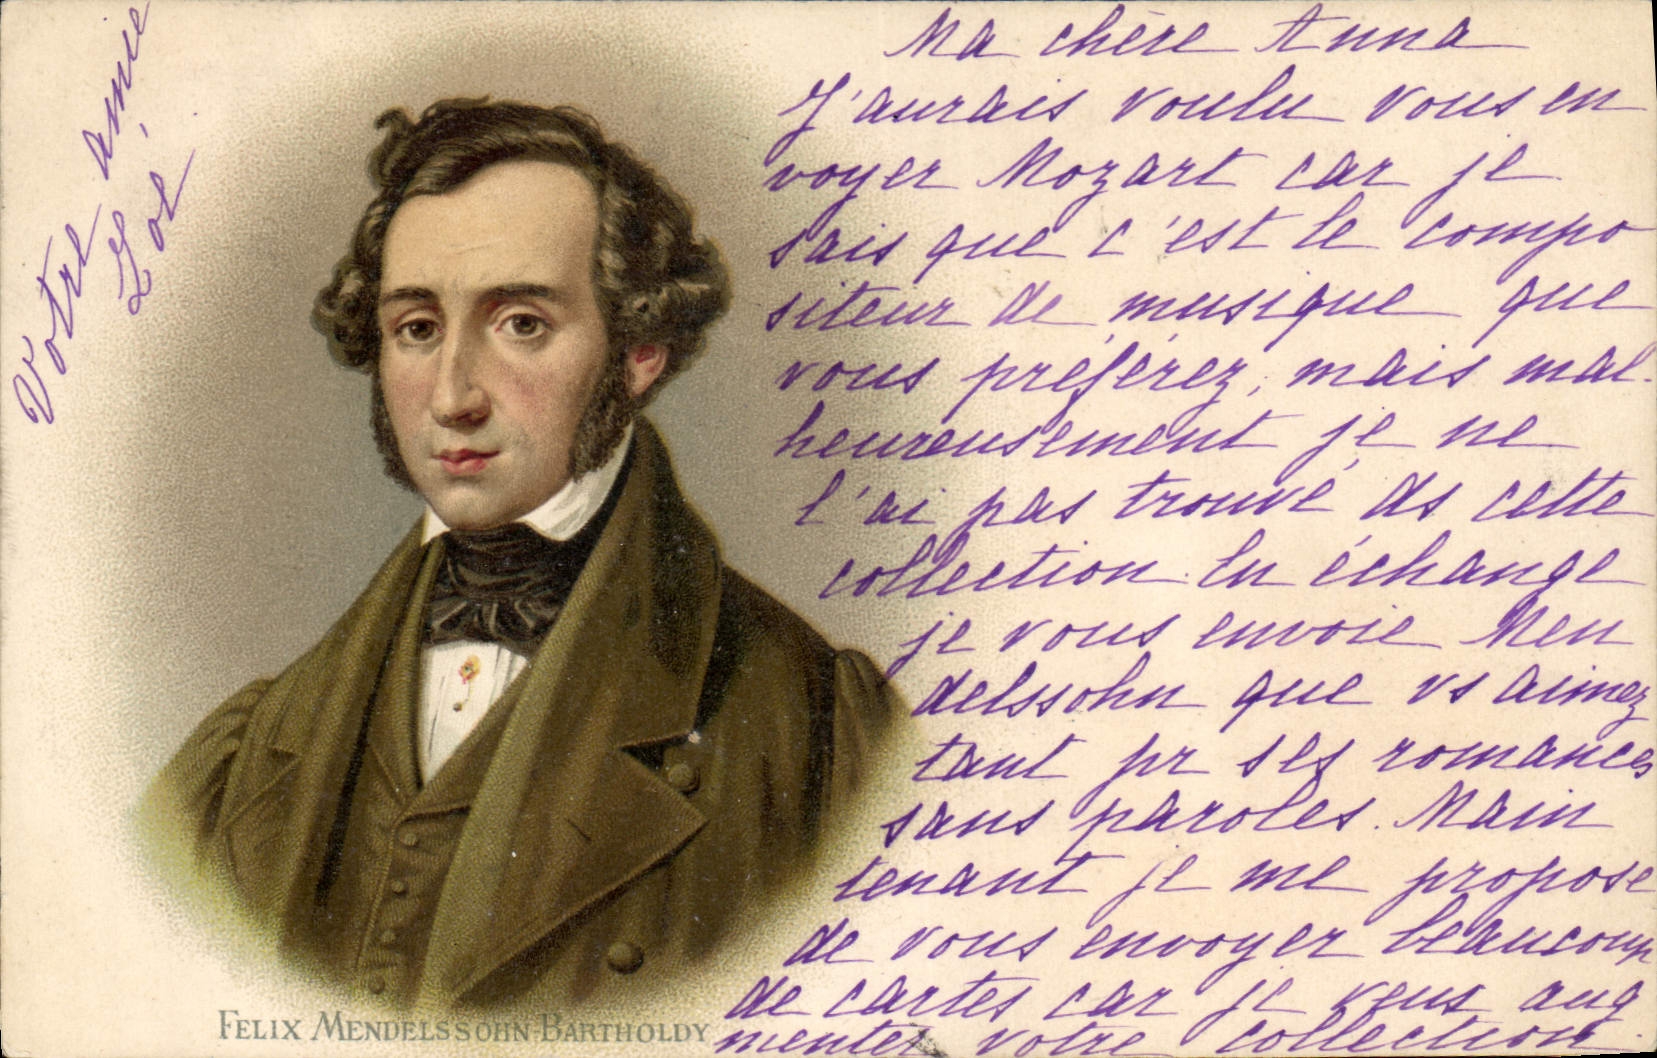 Ma chère Anna
J'aurais voulu vous en
voyer Mozart car je
sais que c'est le compo
siteur de musique que
vous préférez, mais mal-
heureusement je ne
l'ai pas trouvé ds cette
collection. En échange
je vous envoie Men
delssohn que vs aimez
tant pr ses romances
sans paroles. Main
tenant je me propose
de vous envoyer beaucoup
de cartes car je veux aug
menter votre collection.
Votre amie
Zoé
FELIX MENDELSSOHN-BARTHOLDY